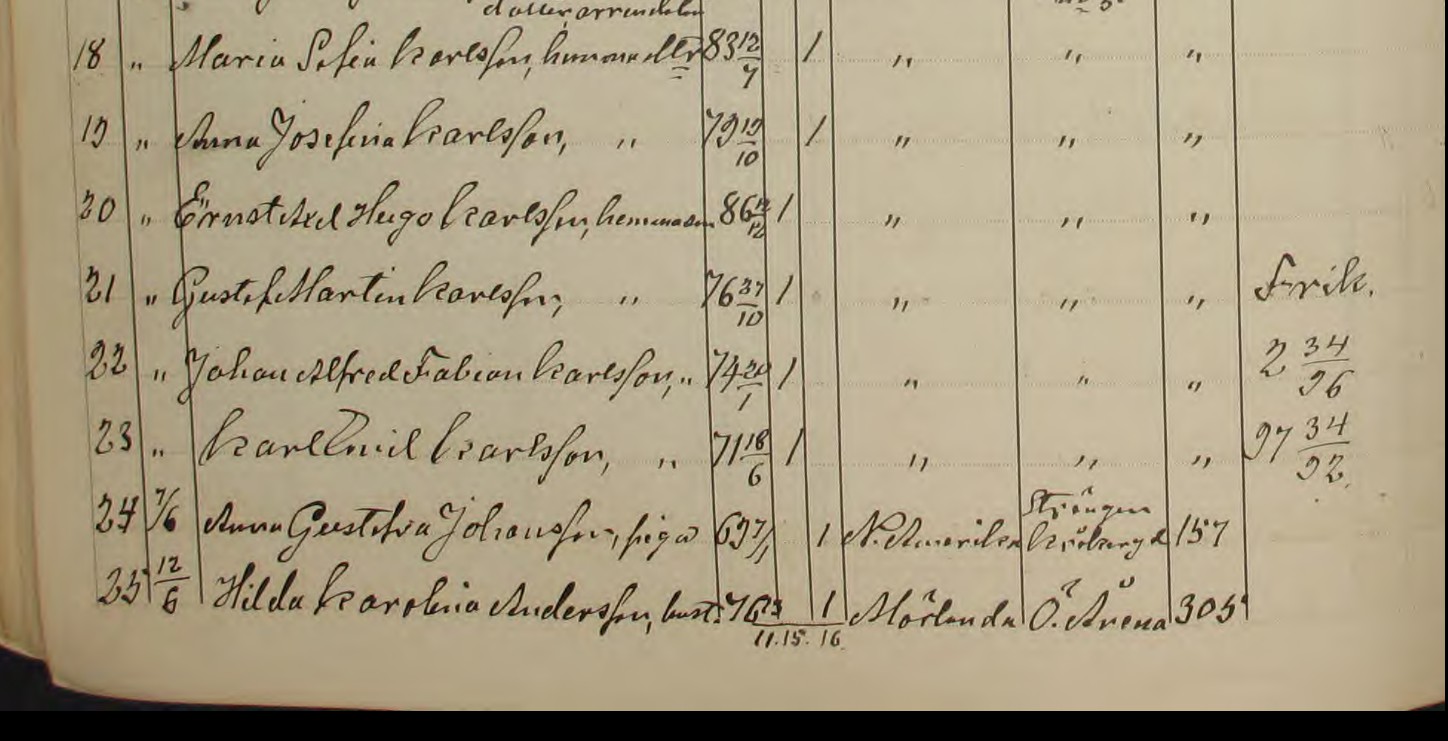 18 " Maria Sofia Karlsson, hemmadtr 83 12/7 1 " " "
19 " Anna Josefina Karlsson, " 79 19/10 1 " " "
20 " Ernst Axel Hugo Karlsson, hemmason 86 12/12 1 " " "
21 " Gustaf Martin Karlsson, " 76 27/10 1 " " " Frik.
22 " Johan Alfred Fabian Karlsson, " 74 20/1 1 " " " 2 34/96
23 " Karl Emil Karlsson, " 71 18/6 1 " " " 97 34/92.
Strängen
24 7/6 Anna Gustafva Johansson, piga 69 7/1 1 N. Amerika 157
25 12/6 Hilda Karolina Andersson, hust. 76 23 1 Mörlanda Ö. Årena 305
11.15. 16.